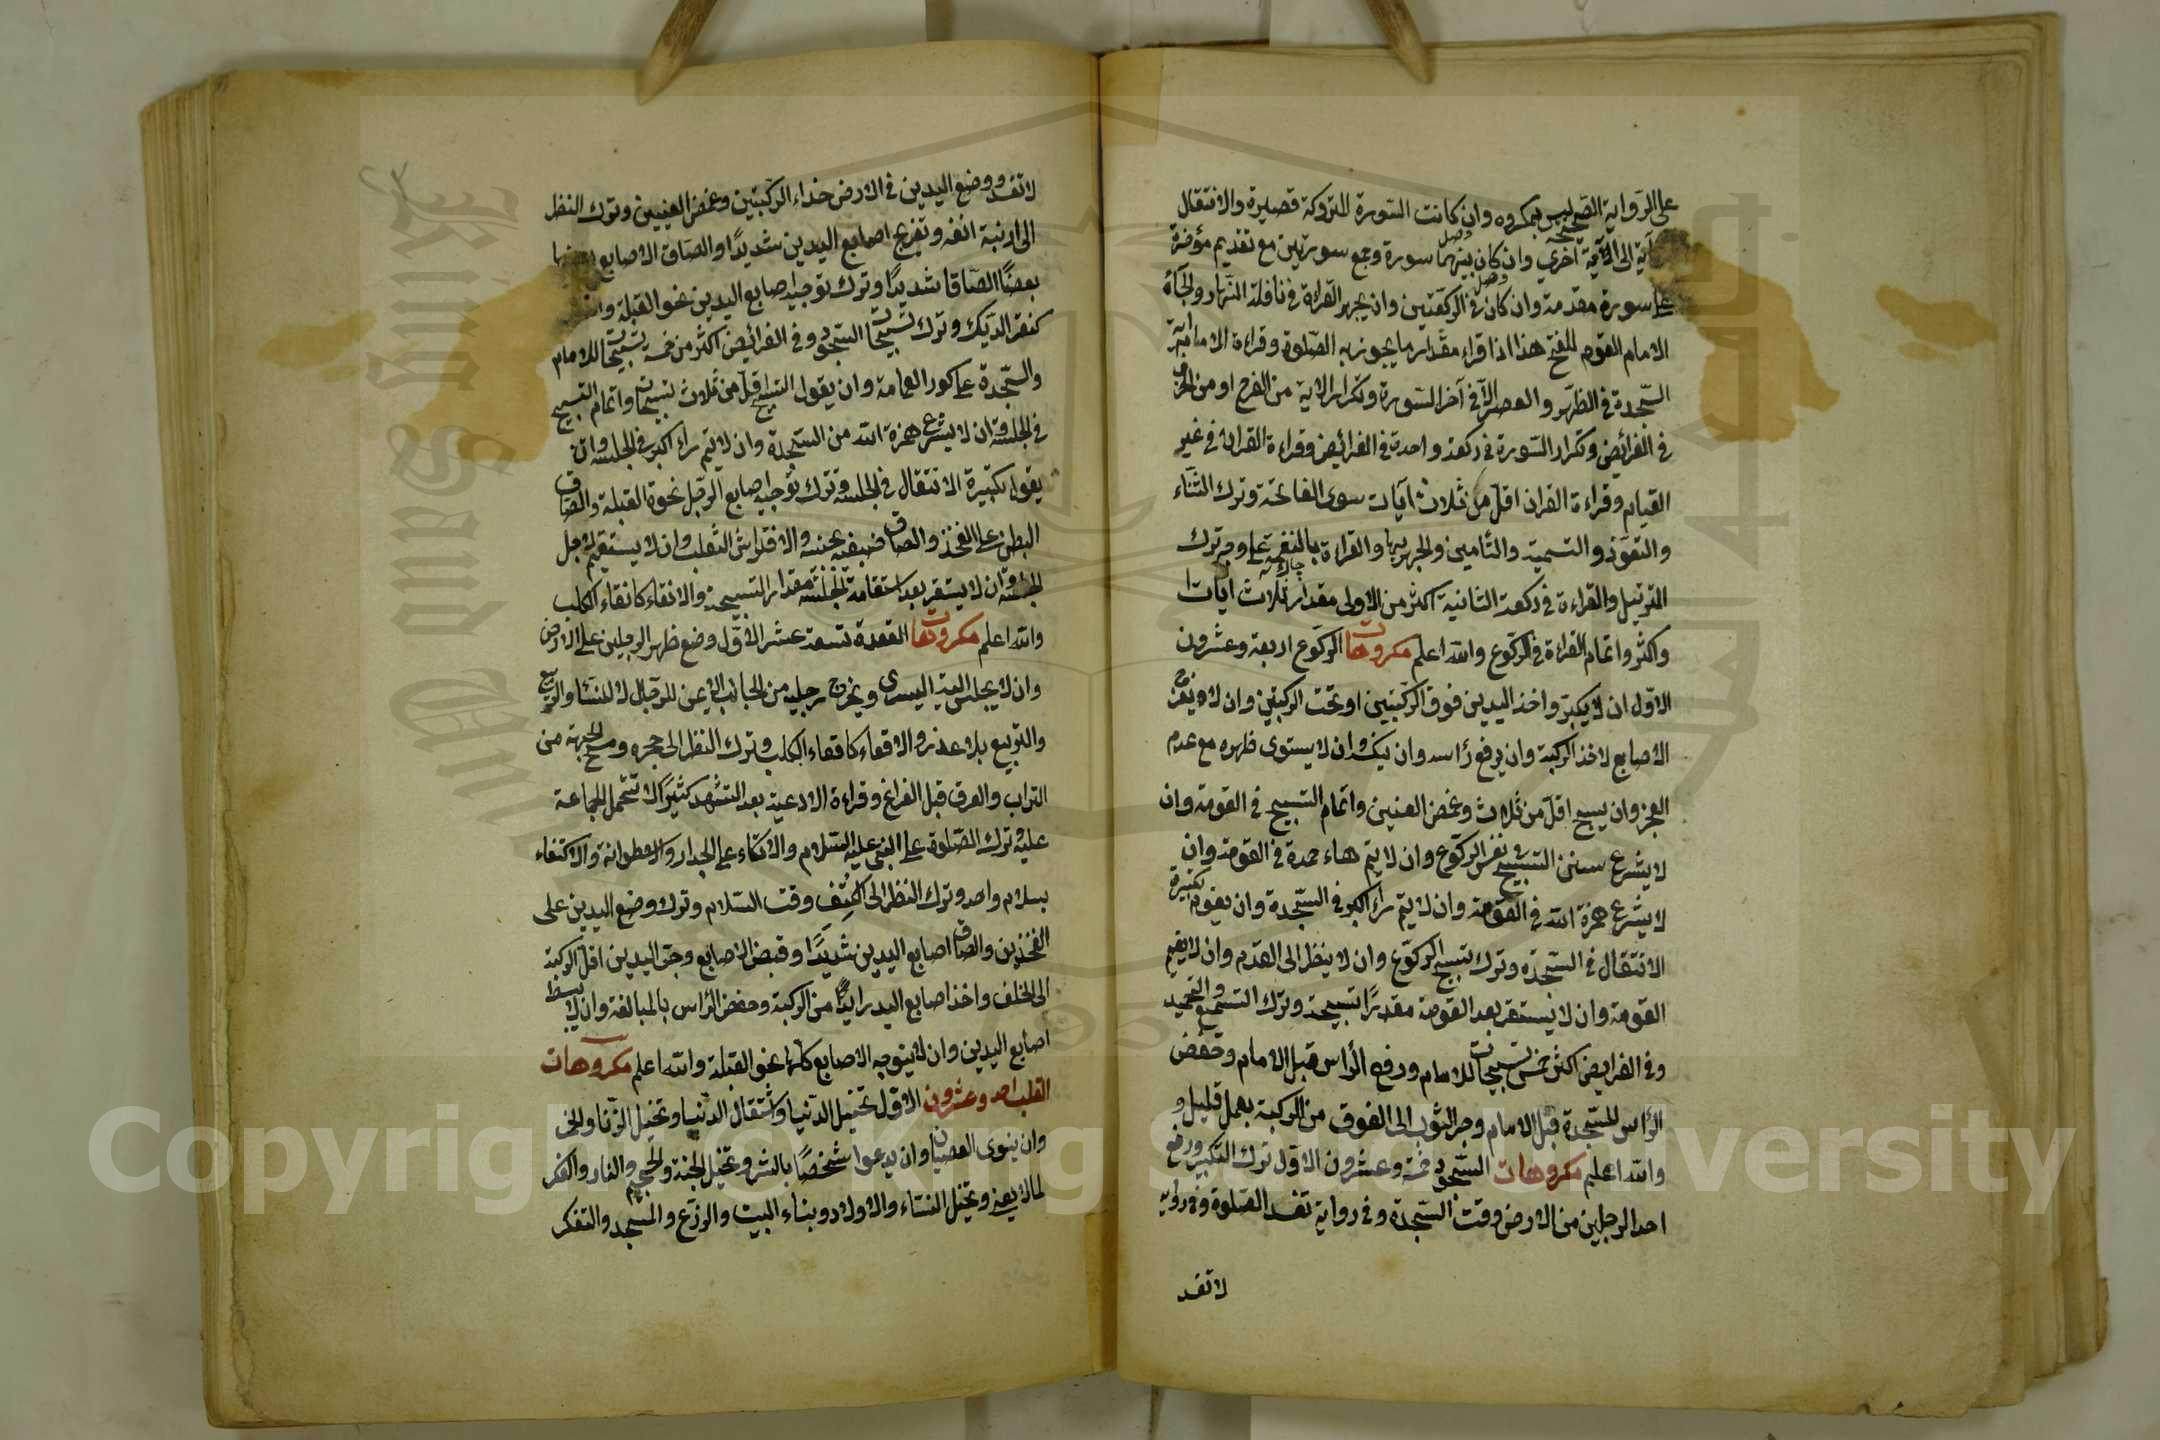 على الرواية الصحيحة ليس بمكروه وان كانت السورة المتروكة قصيرة والانتقال
آية الى الآية اخرى وان كان بينهما فصل سورة وجمع سورتين مع تقديم مؤخرة
على سورة مقدمة وان كان فصل في الركعتين وان يجهر القراءة في نافلة النهار والجأة
الامام القوم للفتح هذا اذا قراء مقدار ما يجوز به الصلوة وقراءة الامام آية
السجدة في الظهر والعصر الا في آخر السورة وتكرار الاية من الفرح او من الحزن
في الفرائض وتكرار السورة في ركعة واحدة في الفرائض وقراءة القران في غير
القيام وقراءة القران اقل من ثلاث آيات سوى الفاتحة وترك الثناء
والتعوذ والتسمية والتأمين والجهر بها والقراءة بالنغمة على وجه ترك
الترتيل والقراءة في ركعة الثانية اكثر من الاولى مقدار ثلاث ايات
واكثر واتمام القراءة في الركوع والله اعلم مكروهات الركوع اربعة وعشرون
الاول ان لا يكبر واخذ اليدين فوق الركبتين او تحت الركبتين وان لا يفرج
الاصابع لاخذ الركبة وان يرفع رأسه وان ينكس وان لا يستوى ظهره مع عدم
العجز وان يسبح اقل من ثلاث وغمض العينين واتمام التسبيح في القومة وان
لا يشرع سنن التسبيح في نفس الركوع وان لا يتم هاء حمدة في القومة وان
لا يشرع همزة الله في القومة وان لا يتم راء اكبر في السجدة وان يقوم تكبيرة
الانتقال في السجدة وترك تسبيح الركوع وان لا ينظر الى القدم وان لا يقيم
القومة وان لا يستقر بعد القومة مقدار تسبيحة وترك التسميع والتحميد
وفي الفرايض اكثر خمس تسبيحات للامام ورفع الرأس قبل الامام وخفض
الرأس للسجدة قبل الامام وجر الثوب الى الفوق من الركبة بعمل قليل و
والله اعلم مكروهات السجود خمسة وعشرون الاول ترك التكبير ورفع
احد الرجلين من الارض وقت السجدة وفي رواية تفسد الصلوة وفي رواية
لا تفسد
لا تفسد ووضع اليدين في الارض حذاء الركبتين وغمض العينين وترك النظر
الى ارنبة انفه وتفريج اصابع اليدين شديدا والصاق الاصابع بعضها
بعضا الصاقا شديدا وترك توجيه اصابع اليدين نحو القبلة
كنقر الديك وترك تسبيحات السجود وفي الفرائض اكثر من خمسة تسبيحات للامام
والسجدة على كور العمامة وان يقول التسبيح اقل من ثلاث تسبيحات واتمام التسبيح
في الجلسة وان لا يشرع همزة الله من السجدة وان لا يتم راء اكبر في الجلسة وان
يقول تكبيرة الانتقال في الجلسة وترك توجيه اصابع الرجل نحوة القبلة والصاق
البطن على الفخذ والصاق ضبعيه بجنبه والافتراش الثعلب وان لا يستقيم لاجل
الجلسة وان لا يستقر بعد استقامة الجلسة مقدار التسبيحة والاقعاء كاقعاء الكلب
والله اعلم مكروهات القعدة تسعة عشر الاول وضع ظهر الرجلين على الارض
وان لا يجلس الية اليسرى ويخرج رجليه من الجانب الايمن للرجال لا للنساء
والتربيع بلا عذر والاقعاء كاقعاء الكلب وترك النظر الى حجره ومسح الجبهة من
التراب والعرق قبل الفراغ وقراءة الادعية بعد التشهد كثيرا لا تتحمل للجماعة
عليه وترك الصلوة على النبي عليه السلام والاتكاء على الجدار والاسطوانة والاكتفاء
بسلام واحد وترك النظر الى الكتف وقت السلام وترك وضع اليدين على
الفخذين والصاق اصابع اليدين شديدا وقبض الاصابع وجر اليدين اقل الركبة
الى الخلف واخذ اصابع اليد زايدا من الركبة وخفض الرأس بالمبالغة وان لا يبسط
اصابع اليدين وان لا يتوجه الاصابع كلها نحو القبلة والله اعلم مكروهات
القلب احد وعشرون الاول تخييل الدنيا واشتغال الدنيا وتخييل الزنا والخمر
وان ينوى العصيان وان يدعوا شخصا بالشر وتخيل الجنة والجحيم والنار والفكر
لما لا يعنيه وتخيل النساء والاولاد وبناء البيت والزرع والمسجد والتفكر
Copyright © King Saud University